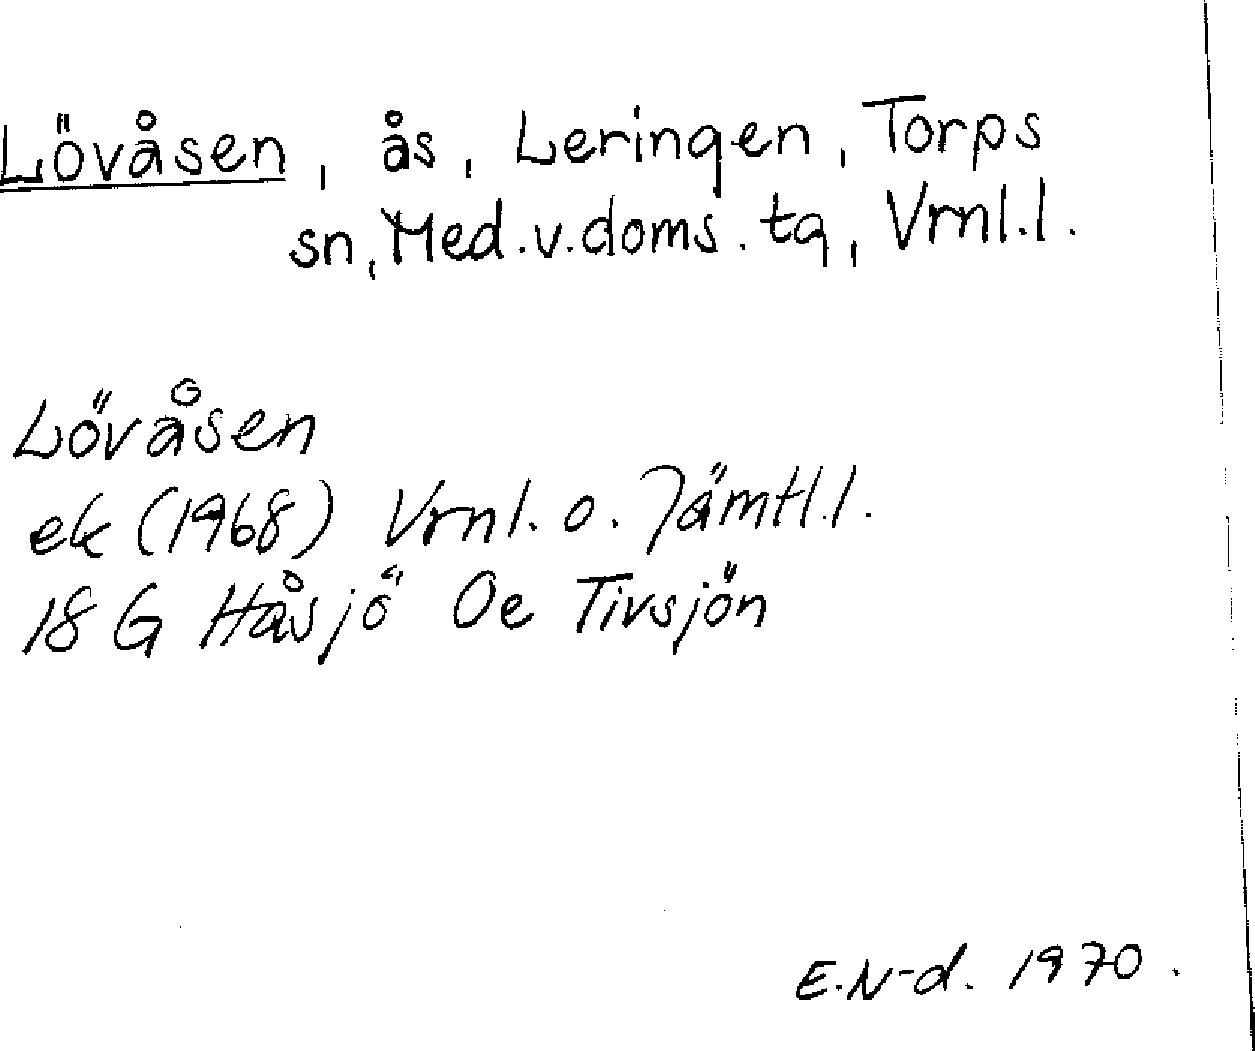 Lövåsen, ås, Leringen, Torps
sn, Med.v.doms.tg, Vrnl.l.
Lövåsen
ek (1968) Vrnl. o. Jämtl.l.
18 G Håsjö Oe Tivsjön
E.N-d. 1970.